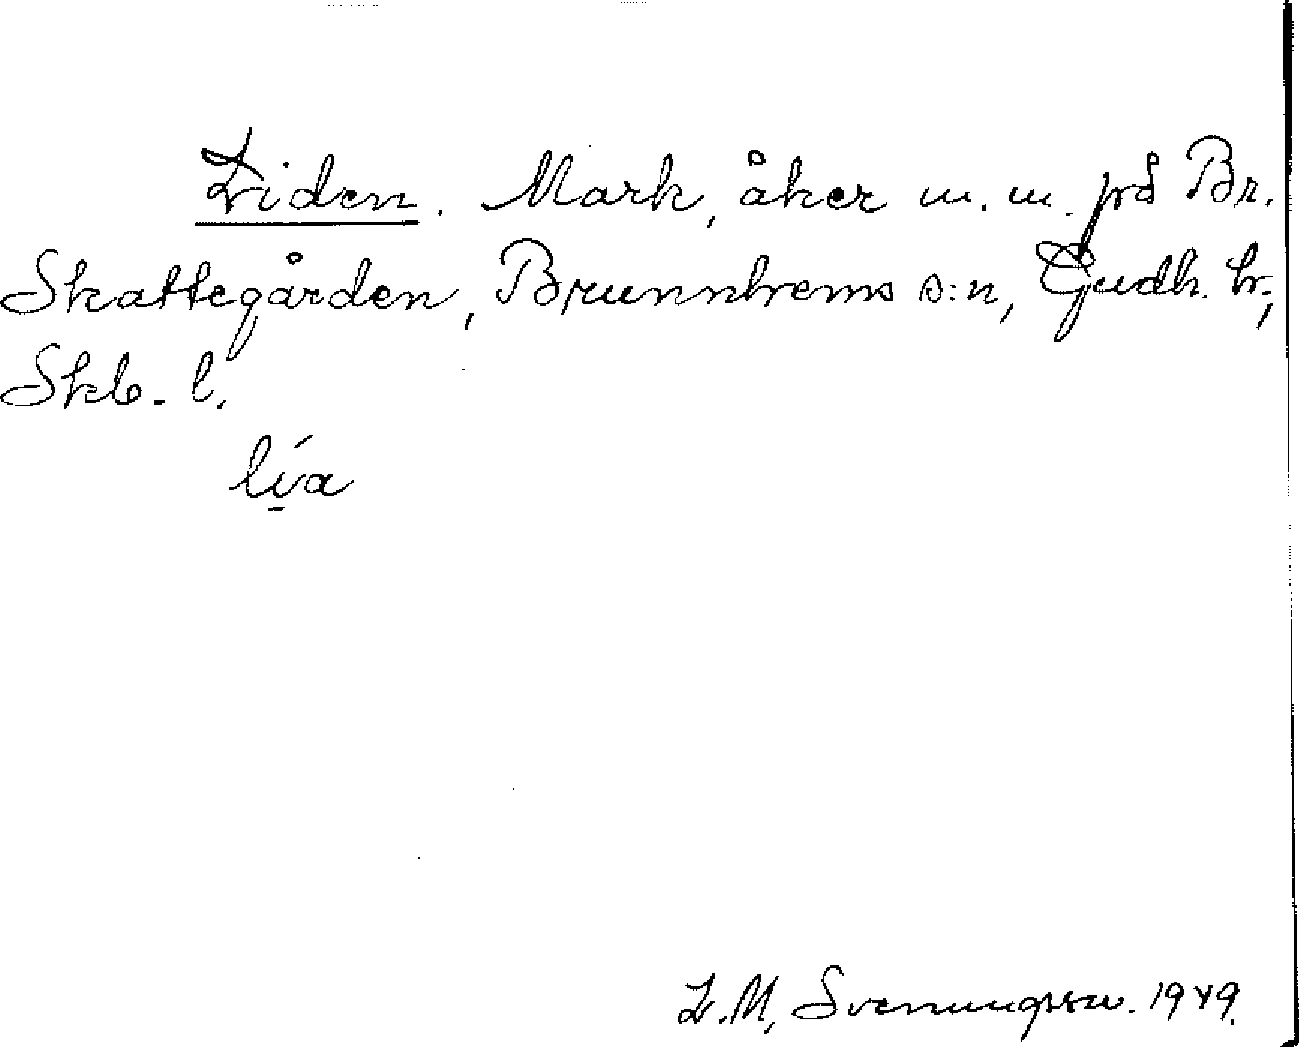 Liden. Mark, åker m. m. på Br.
Skattegården, Brunnhems s:n, Gudh. hr.,
Skb. l.
lí̱a
L. M. Svenungsson. 1949.